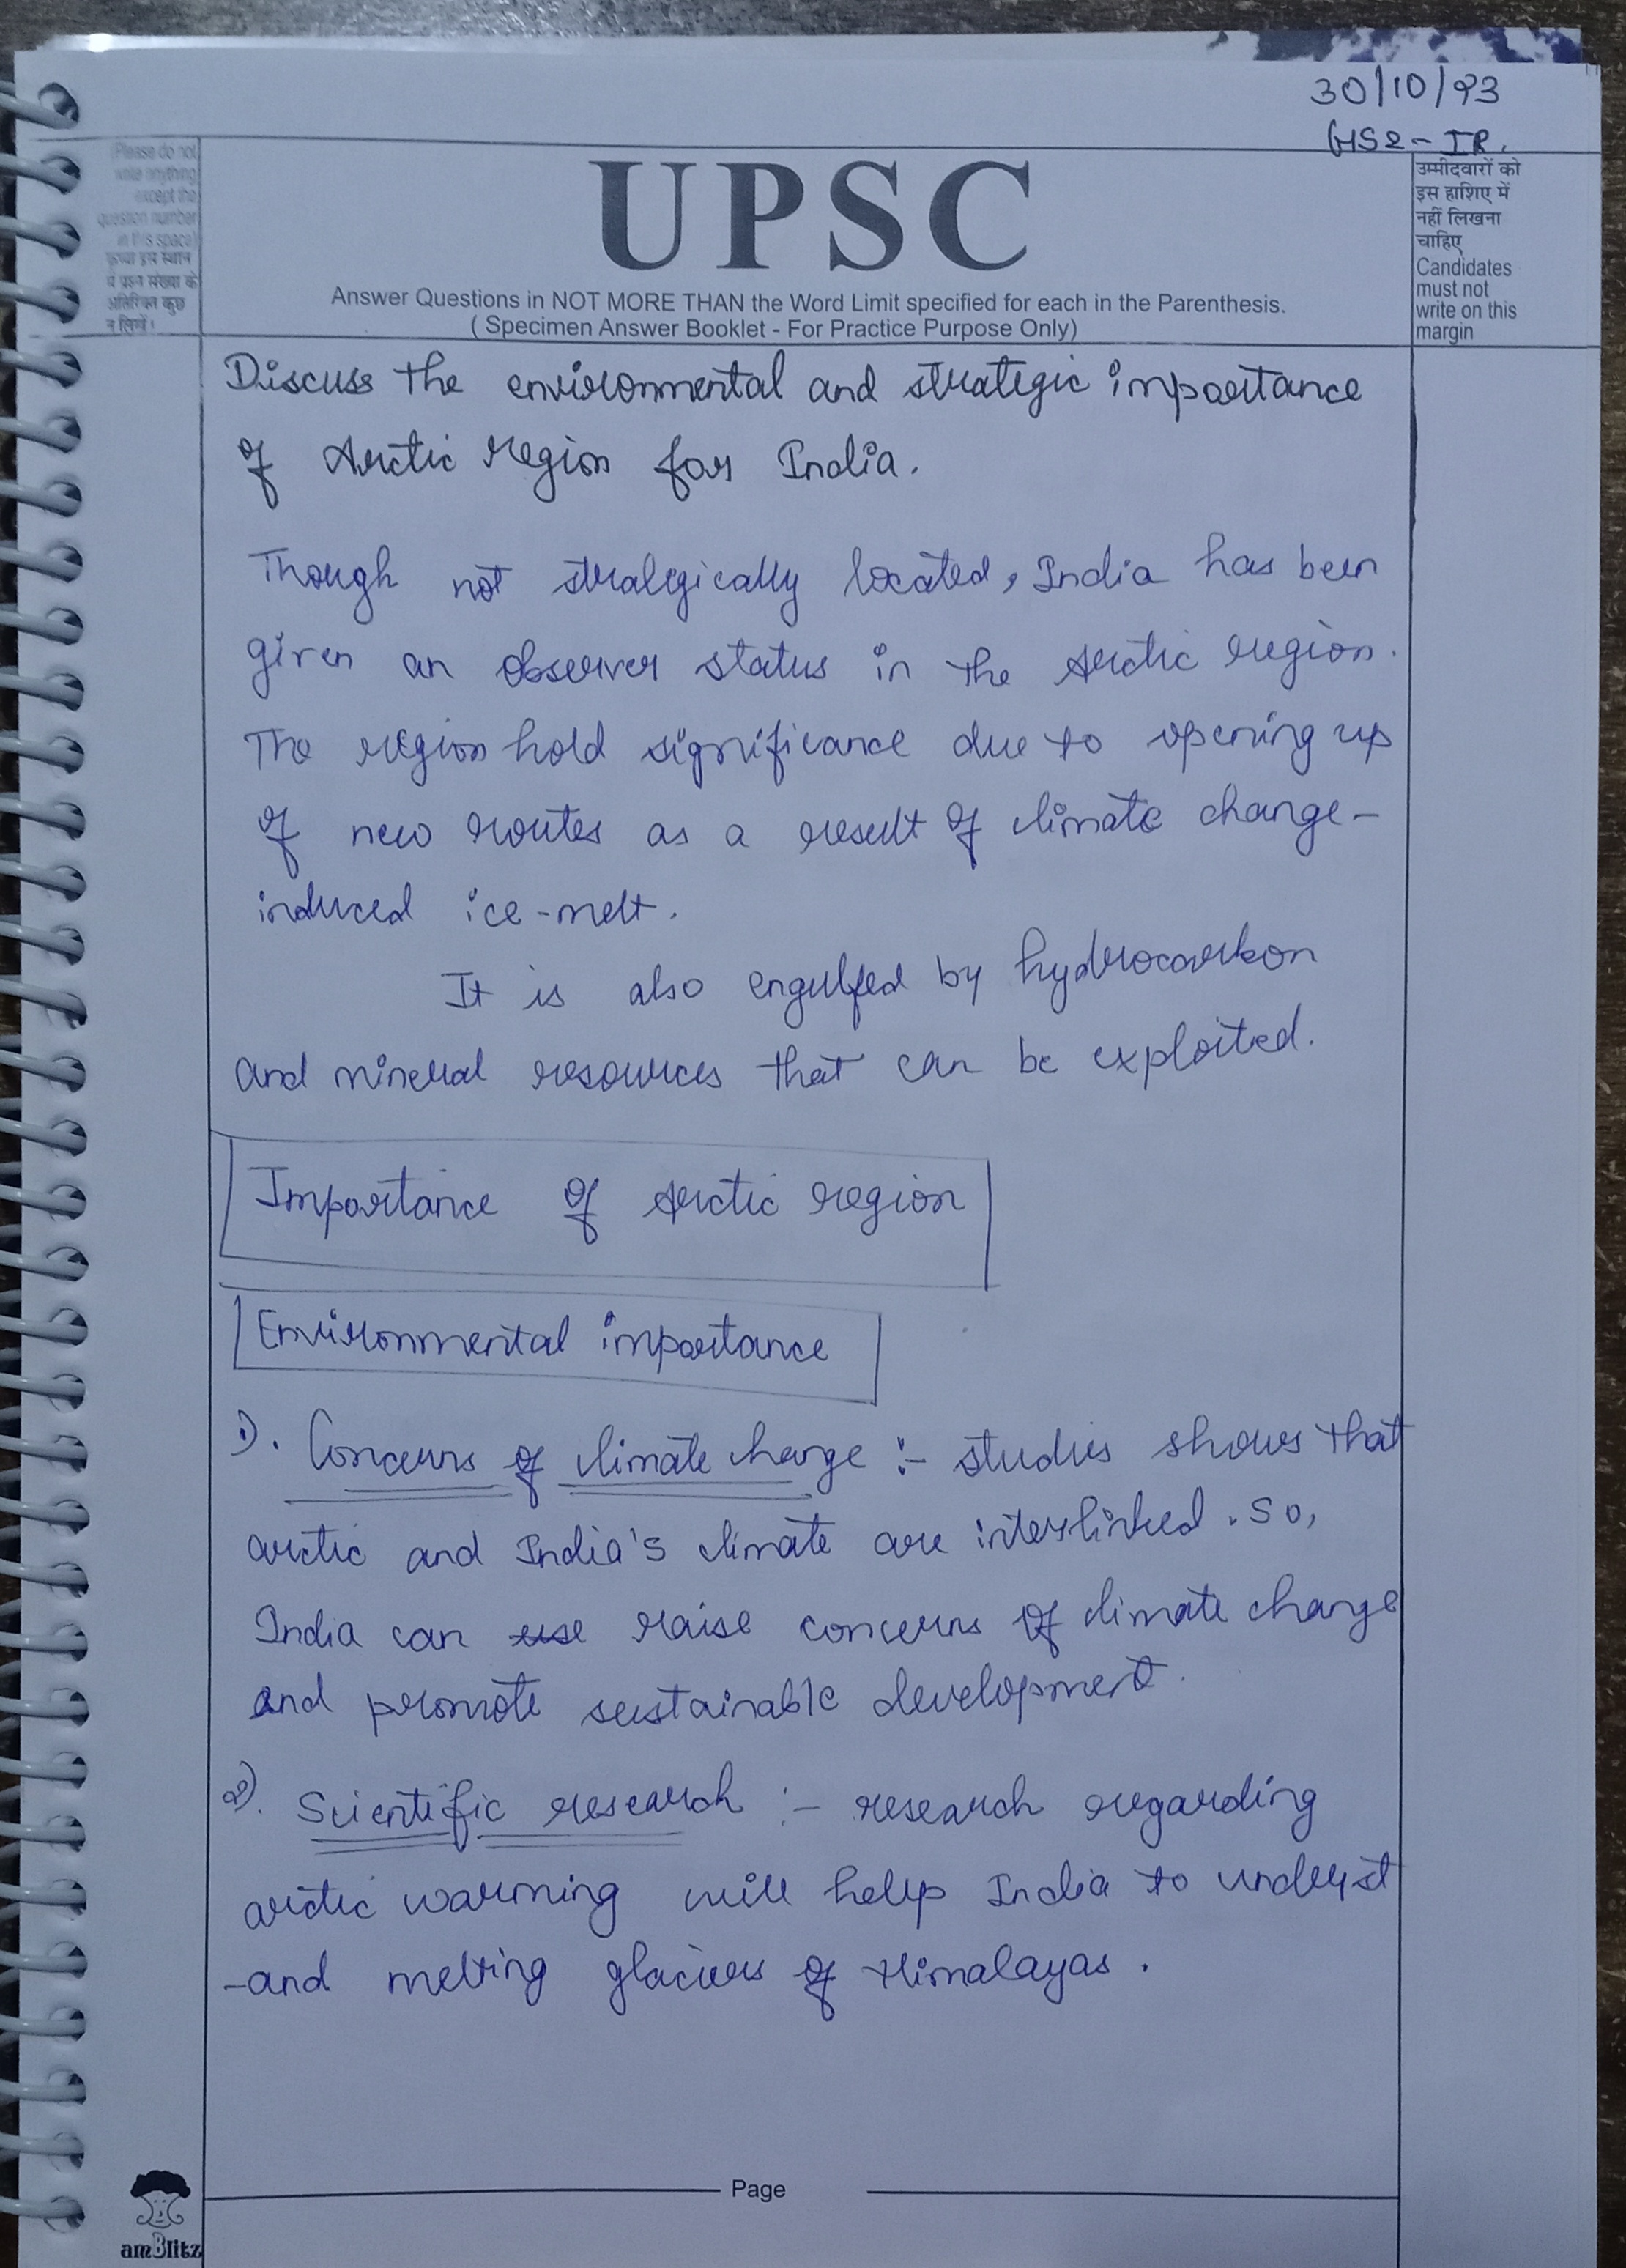 30/10/23
GS2 - IR.
(Please do not
write anything
except the
question number
in this space)
कृपया इस स्थान
में प्रश्न संख्या के
अतिरिक्त कुछ
न लिखें।
UPSC
Answer Questions in NOT MORE THAN the Word Limit specified for each in the Parenthesis.
( Specimen Answer Booklet - For Practice Purpose Only)
उम्मीदवारों को
इस हाशिए में
नहीं लिखना
चाहिए
Candidates
must not
write on this
margin
Discuss the environmental and strategic importance
of Arctic region for India.
Though not stratergically located, India has been
given an observer status in the Arctic region.
The region hold significance due to opening up
of new routes as a result of climate change-
induced ice-melt.
It is also engulfed by hydrocarbon
and mineral resources that can be exploited.
Importance of Arctic region
Environmental importance
1). Concerns of climate change :- studies shows that
arctic and India's climate are interlinked. So,
India can use raise concerns of climate change
and promote sustainable development.
2). Scientific research :- research regarding
arctic warming will help India to underst
-and melting glaciers of Himalayas.
Page
amBlitz